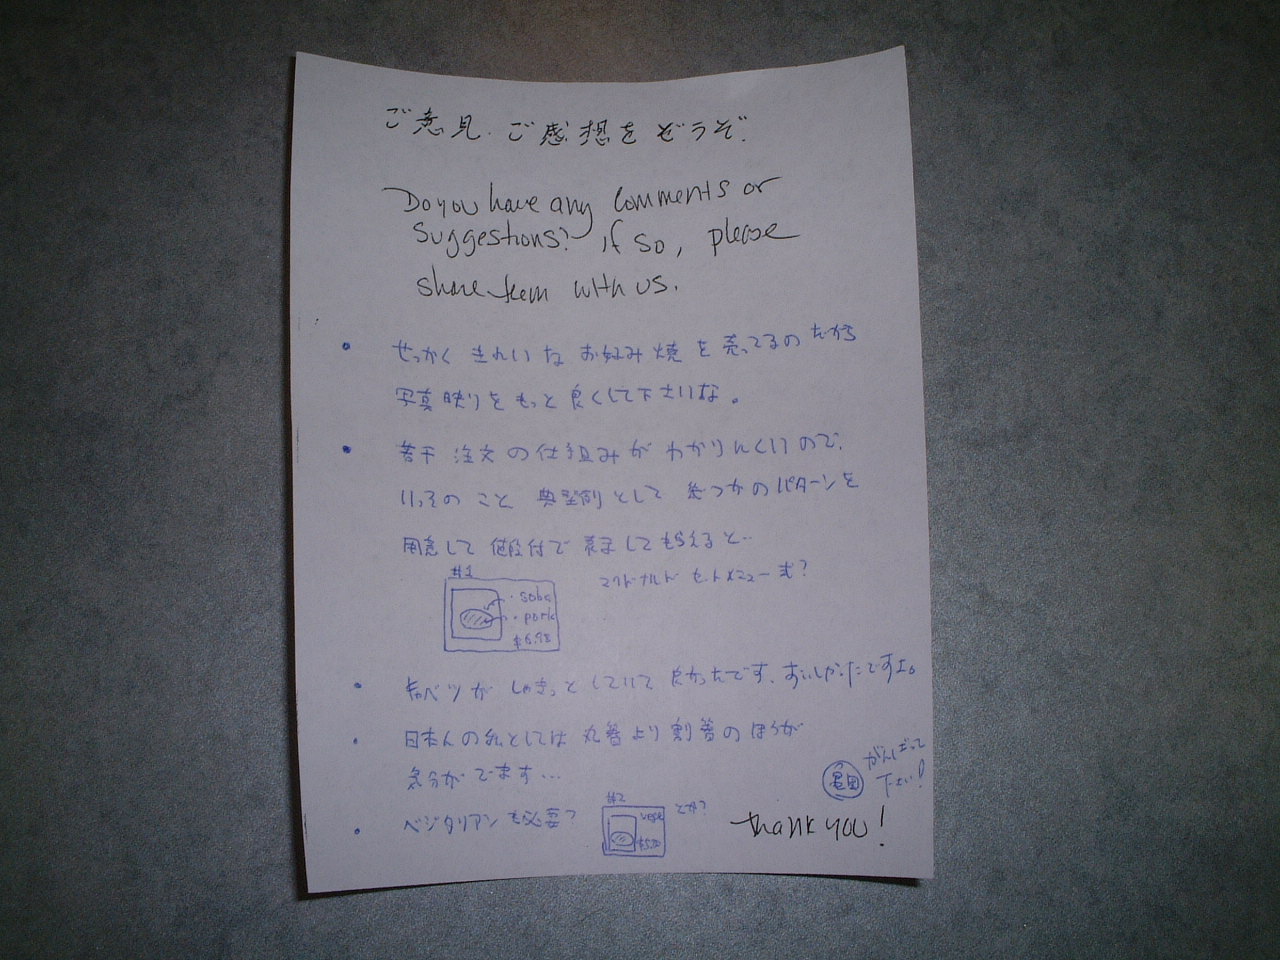 ご意見.ご感想をどうぞ.
Do you have any comments or
suggestions? If so, please
share them with us.
・ せっかく きれいな お好み焼を売ってるのだから
写真映りをもっと良くして下さいな。
・ 若干 注文の仕組みが わかりにくいので.
いっそのこと 典型例として 幾つかのパターンを
用意して 値段付で 表示してもらえると…
#1
・soba
・pork
$6.98
マクドナルド セットメニュー式?
・ キャベツが しゃきっとしていて 良かったです、おいしかったですよ。
・ 日本人の私としては 丸箸より割箸のほうが
気分がでます…
・ ベジタリアンも必要?
#2
vege
とか?
がんばって
下さい!
thank you!